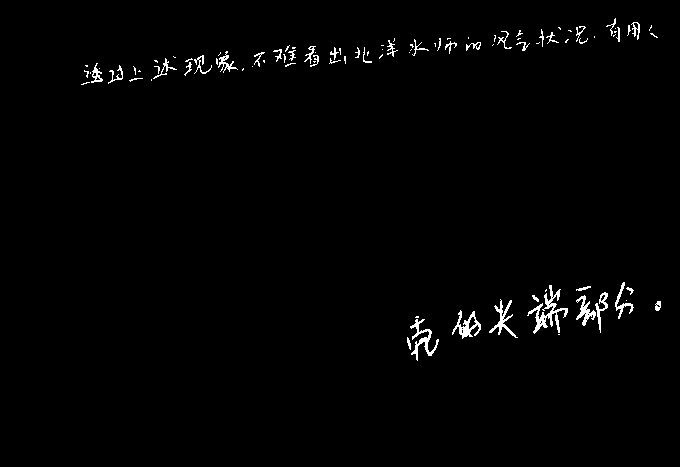 透过上述现象,不难看出北洋水师的风气状况.有用
壳的尖端部分。